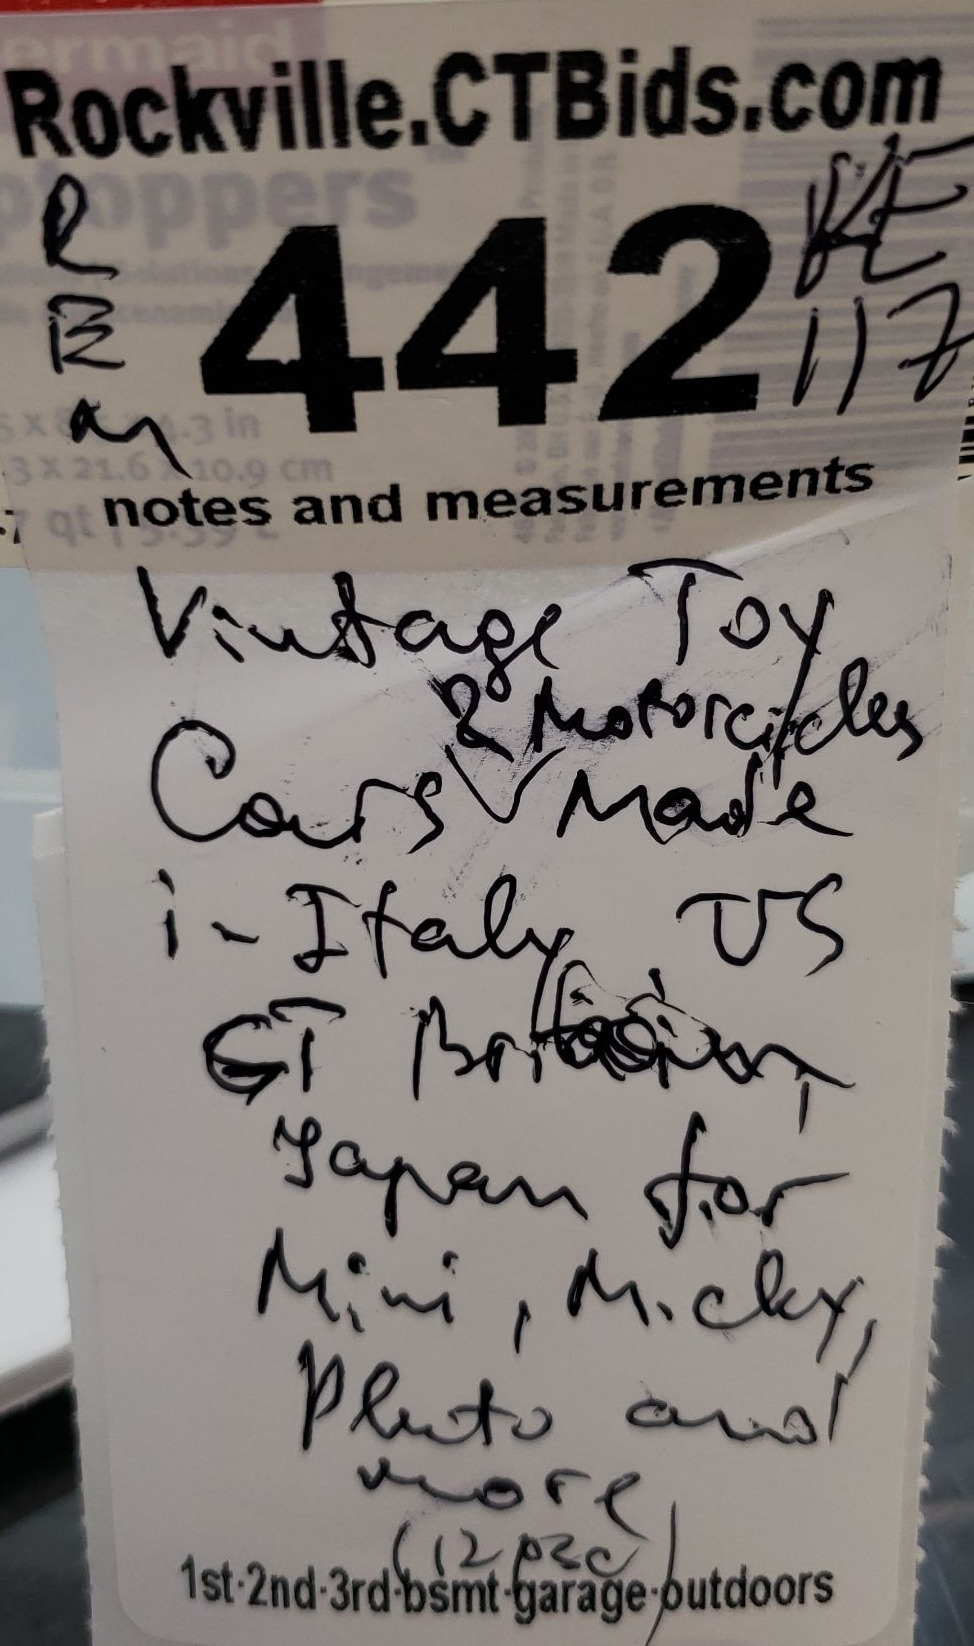 ermaid
Rockville.CTBids.com
toppers
R
B
442
KE
117
.3 in
3 x 21.6 x 10.9 cm
notes and measurements
Vintage Toy
& Motorcycles
Cars Made
in Italy, US
GT Britain,
Japan for
Mini, Micky,
Pluto and
more
(12 pzc)
1st·2nd·3rd·bsmt·garage·outdoors